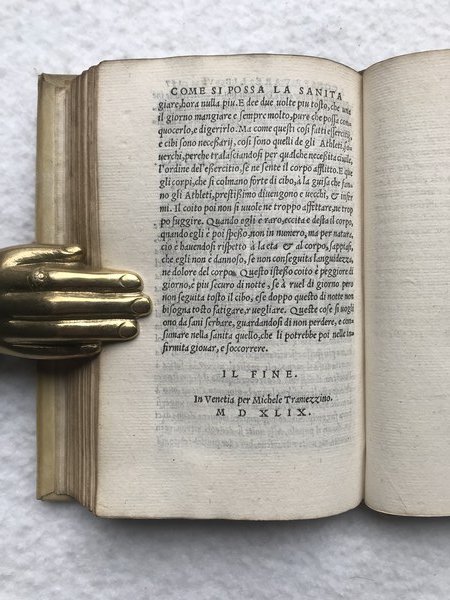 COME SI POSSA LA SANITA
giare, hora nulla piu. E dee due uolte piu tosto, che una
il giorno mangiare e sempre molto, pure che possa con
quocerlo, e digerirlo. Ma come questi cosi fatti essercitij,
e cibi sono neceßarij, cosi sono quelli de gli Athleti, sou
uerchi, perche tralasciandosi per qualche neceßita ciuile,
l'ordine del'eßercitio, se ne sente il corpo afflitto. E que
gli corpi, che si colmano forte di cibo, à la guisa che fan
no gli Athleti, prestißimo diuengono e uecchi, & infer
mi. Il coito poi non si uuole ne troppo affettare, ne trop
po fuggire. Quando egli è raro, eccita e desta il corpo,
quando egli è poi speßo, non in numero, ma per natura,
cio è hauendosi rispetto à la eta & al corpo, sappiasi,
che egli non è dannoso, se non conseguita languidezza,
ne dolore del corpo. Questo istesso coito è peggiore di
giorno, è piu securo di notte, se à quel di giorno pero
non seguita tosto il cibo, e se doppo questo di notte non
bisogna tosto fatigare, e uegliare. Queste cose si uogli
ono da sani serbare, guardandosi di non perdere, e con
sumare nella sanita quello, che li potrebbe poi nelle in
firmita giouar, e soccorrere.
IL FINE.
In Venetia per Michele Tramezzino.
M D XLIX.